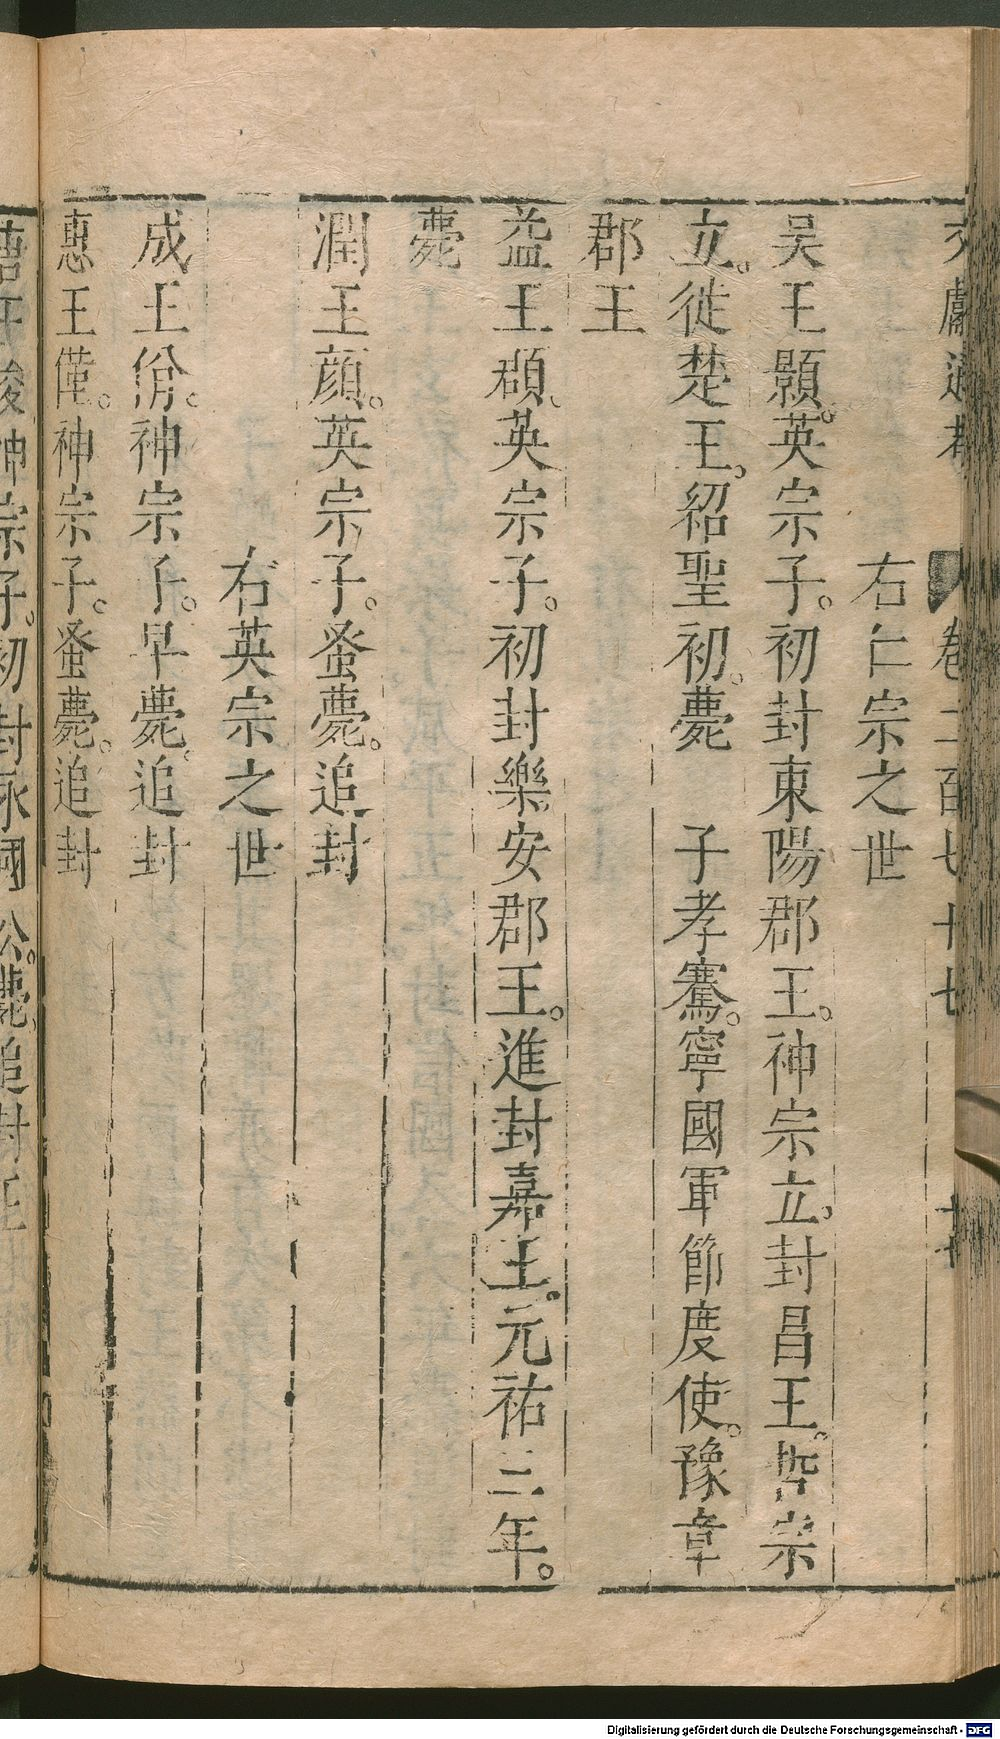 文獻通考 卷二百七十七 廿
右仁宗之世
吴王顥。英宗子。初封東陽郡王。神宗立。封昌王。哲宗
立。徙楚王。紹聖初。薨 子孝騫。寧國軍節度使。豫章
郡王
益王頵。英宗子。初封樂安郡王。進封嘉王。元祐三年。
薨
潤王顏。英宗子。蚤薨。追封
右英宗之世
成王佾。神宗子。早薨。追封
惠王僅。神宗子。蚤薨。追封
唐王俊神宗子。初封永國公。薨。追封王
Digitalisierung gefördert durch die Deutsche Forschungsgemeinschaft - DFG